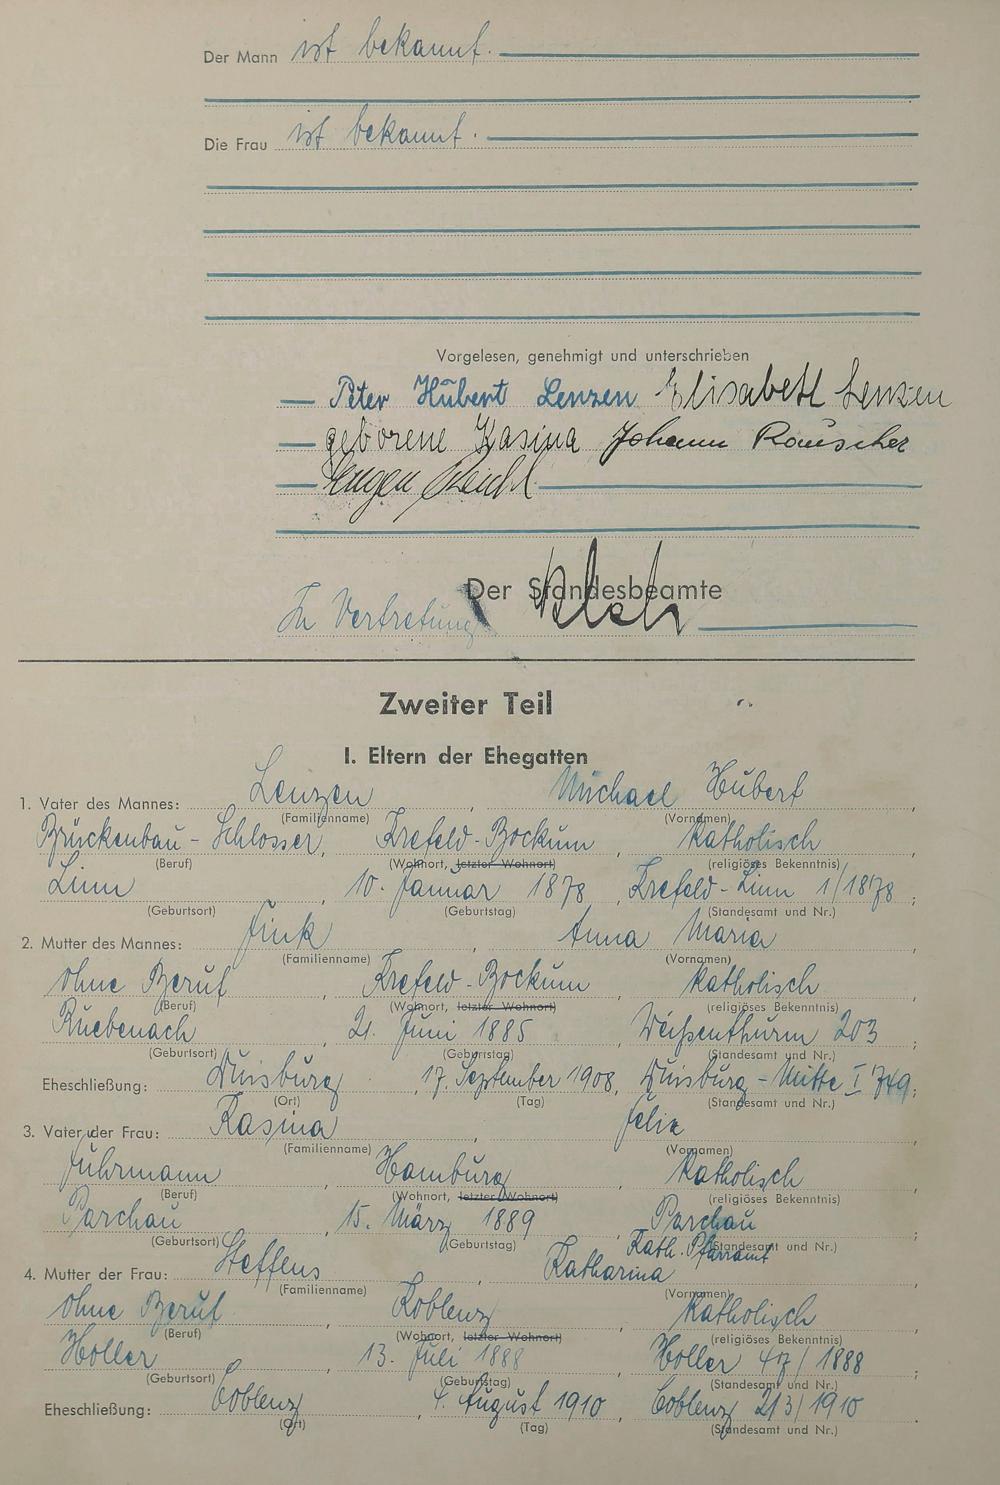 Der Mann ist bekannt.
Die Frau ist bekannt.
Vorgelesen, genehmigt und unterschrieben
Peter Hubert Lenzen Elisabeth Lenzen
geborene Kasina Johann Rauscher
Eugen
Der Standesbeamte
In Vertretung
Zweiter Teil
I. Eltern der Ehegatten
1. Vater des Mannes: Lenzen, Michael Hubert,
(Familienname) (Vornamen)
Brückenbau-Schlosser, Krefeld-Bockum, katholisch
(Beruf) (Wohnort, letzter Wohnort) (religiöses Bekenntnis)
Linn, 10. Januar 1878, Krefeld-Linn 1/1878;
(Geburtsort) (Geburtstag) (Standesamt und Nr.)
2. Mutter des Mannes: Fink, Anna Maria,
(Familienname) (Vornamen)
ohne Beruf, Krefeld-Bockum, katholisch
(Beruf) (Wohnort, letzter Wohnort) (religiöses Bekenntnis)
Ruebenach, 21. Juni 1885, Weißenthurm 203;
(Geburtsort) (Geburtstag) (Standesamt und Nr.)
Eheschließung: Duisburg, 17. September 1908, Duisburg-Mitte I 749;
(Ort) (Tag) (Standesamt und Nr.)
3. Vater der Frau: Kasina, Felix,
(Familienname) (Vornamen)
Fuhrmann, Hamburg, katholisch
(Beruf) (Wohnort, letzter Wohnort) (religiöses Bekenntnis)
Parchau, 15. März 1889, Parchau
(Geburtsort) (Geburtstag) (Standesamt und Nr.)
Kath. Pfarramt
4. Mutter der Frau: Steffens, Katharina,
(Familienname) (Vornamen)
ohne Beruf, Koblenz, katholisch
(Beruf) (Wohnort, letzter Wohnort) (religiöses Bekenntnis)
Holler, 13. Juli 1888, Holler 47/1888;
(Geburtsort) (Geburtstag) (Standesamt und Nr.)
Eheschließung: Coblenz, 4. August 1910, Coblenz 213/1910
(Ort) (Tag) (Standesamt und Nr.)